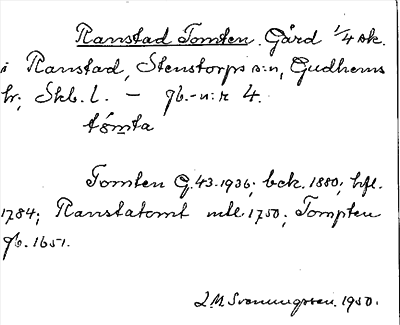 Ranstad Tomten. Gård 1/4 sk.
i Ranstad, Stenstorps s:n, Gudhems
hr, Skb. l. — jb.-n:r 4.
tómta
Tomten G. 43. 1936; bek. 1880; hfl.
1784; Ranstatomt mtl. 1750; Tompten
jb. 1651.
L.M. Svenungsson. 1950.